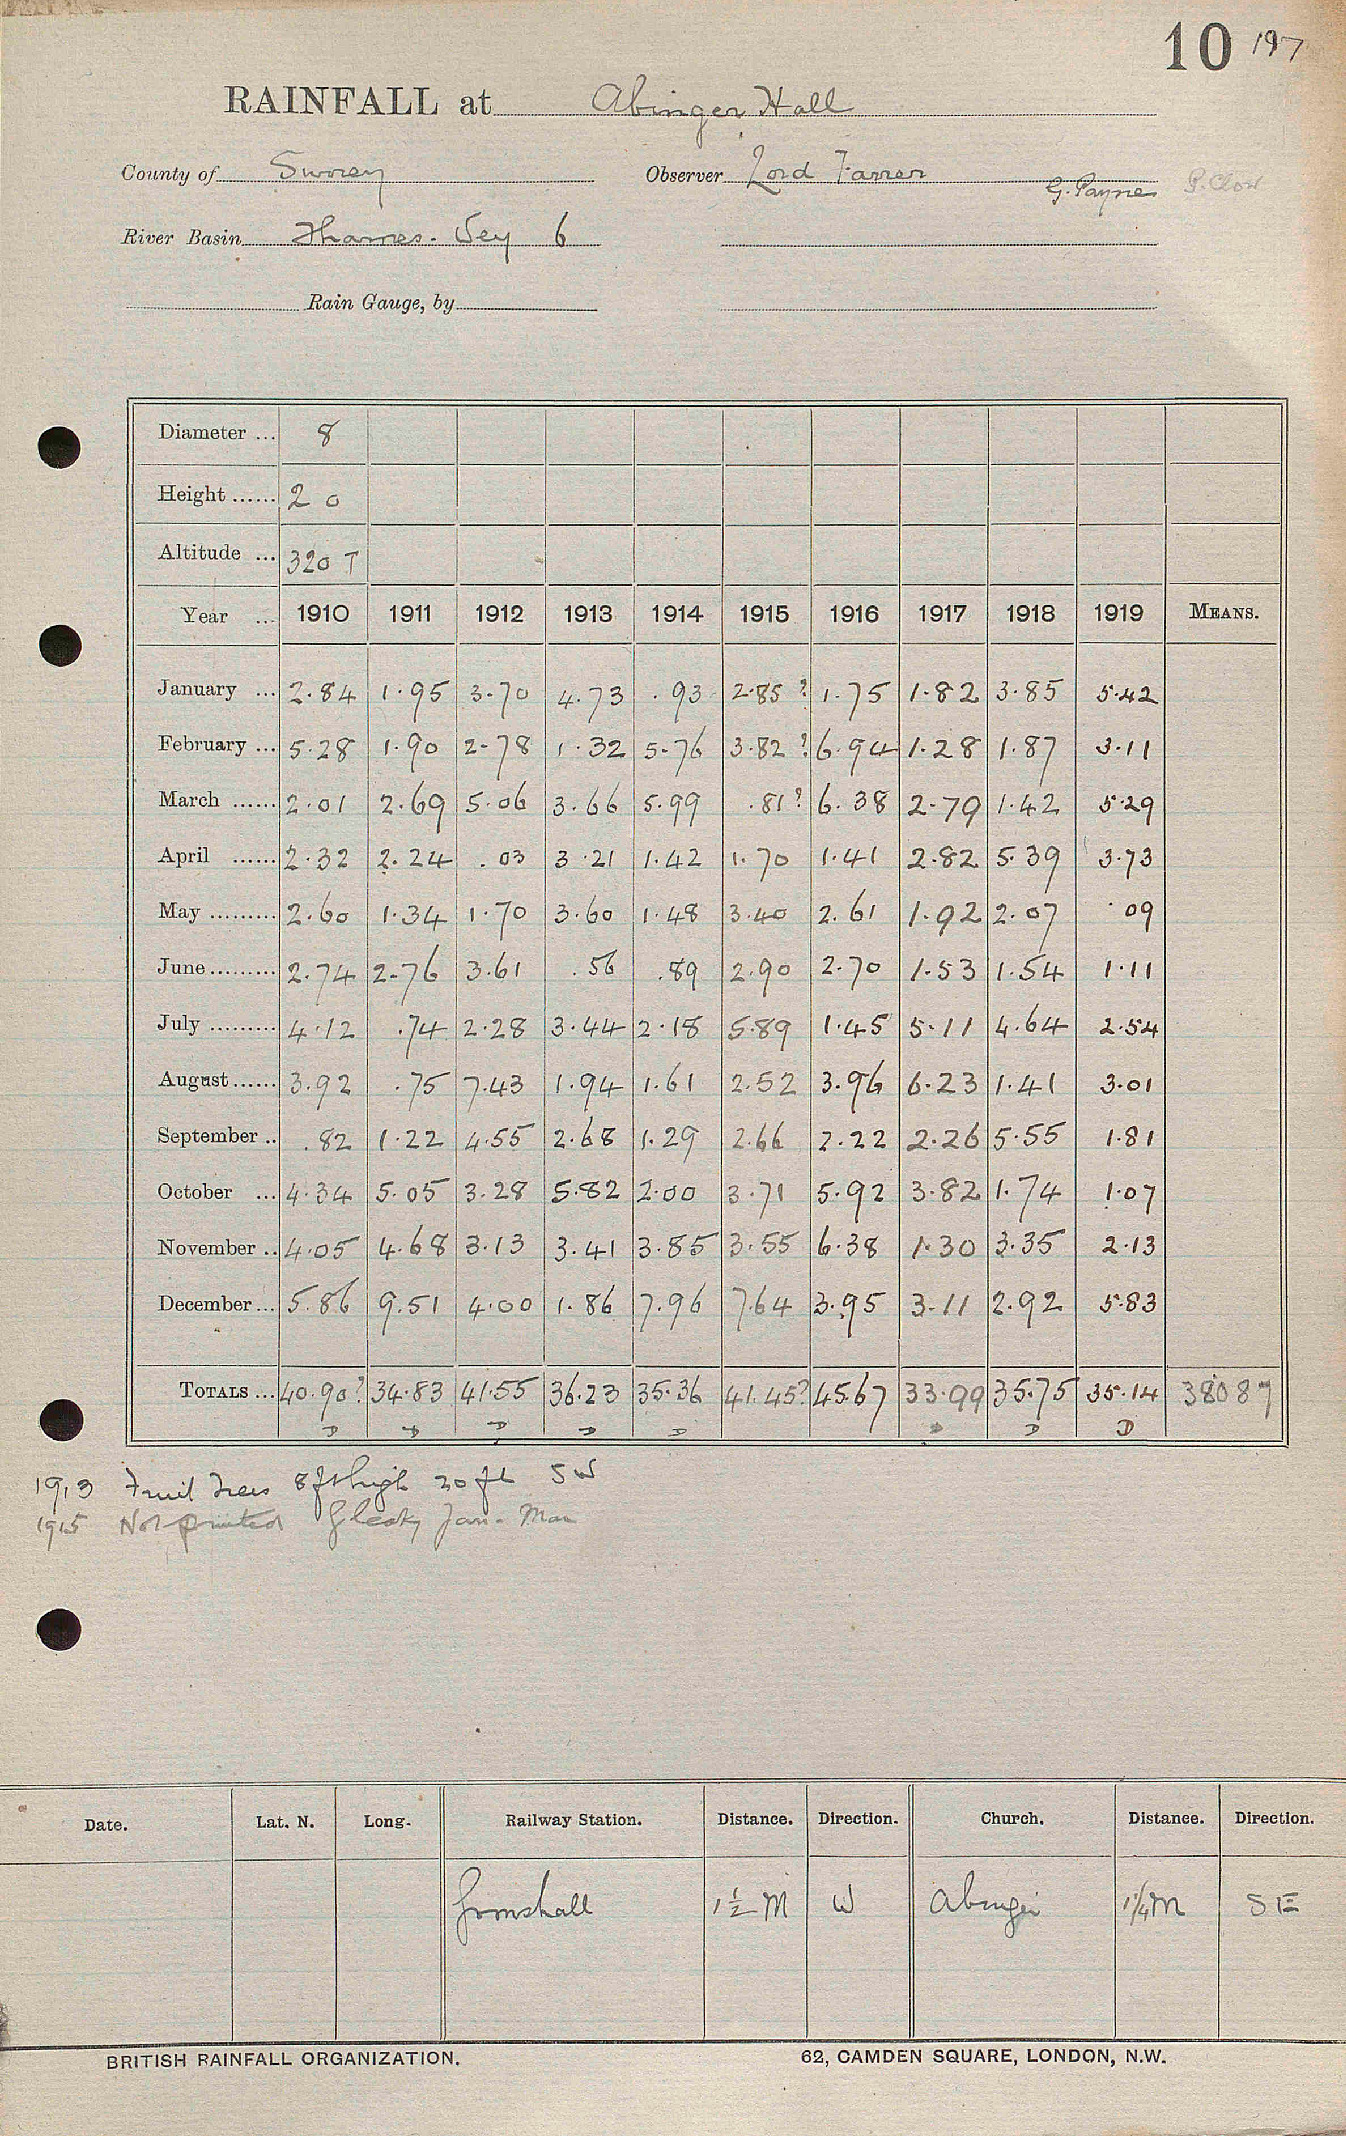 10 197
RAINFALL at Abinger Hall
County of Surrey Observer Lord Farrer
G. Payne
River Basin Thames. Wey 6
Rain Gauge, by
Diameter ... 8
Height ...... 2 0
Altitude ... 320 T
Year ... 1910 1911 1912 1913 1914 1915 1916 1917 1918 1919 MEANS.
January ... 2.84 1.95 3.70 4.73 .93 2.85 ? 1.75 1.82 3.85 5.42
February ... 5.28 1.90 2.78 1.32 5.76 3.82 ? 6.94 1.28 1.87 3.11
March ...... 2.01 2.69 5.06 3.66 5.99 .81 ? 6.38 2.79 1.42 5.29
April ...... 2.32 2.24 .03 3.21 1.42 1.70 1.41 2.82 5.39 3.73
May ......... 2.60 1.34 1.70 3.60 1.48 3.40 2.61 1.92 2.07 .09
June ......... 2.74 2.76 3.61 .56 .89 2.90 2.70 1.53 1.54 1.11
July ......... 4.12 .74 2.28 3.44 2.18 5.89 1.45 5.11 4.64 2.54
August ...... 3.92 .75 7.43 1.94 1.61 2.52 3.96 6.23 1.41 3.01
September .. .82 1.22 4.55 2.68 1.29 2.66 2.22 2.26 5.55 1.81
October ... 4.34 5.05 3.28 5.82 2.00 3.71 5.92 3.82 1.74 1.07
November .. 4.05 4.68 3.13 3.41 3.85 3.55 6.38 1.30 3.35 2.13
December ... 5.86 9.51 4.00 1.86 7.96 7.64 3.95 3.11 2.92 5.83
TOTALS ... 40.90? 34.83 41.55 36.23 35.36 41.45? 45.67 33.99 35.75 35.14 38087
D D D D D D D D
1913 Fruit trees 8 ft high 20 ft SW
1915 Not printed leaky Jan - Mar
Date. Lat. N. Long. Railway Station. Distance. Direction. Church. Distance. Direction.
Gomshall 1½ M W Abinger 1¼ M SE
BRITISH RAINFALL ORGANIZATION. 62, CAMDEN SQUARE, LONDON, N.W.